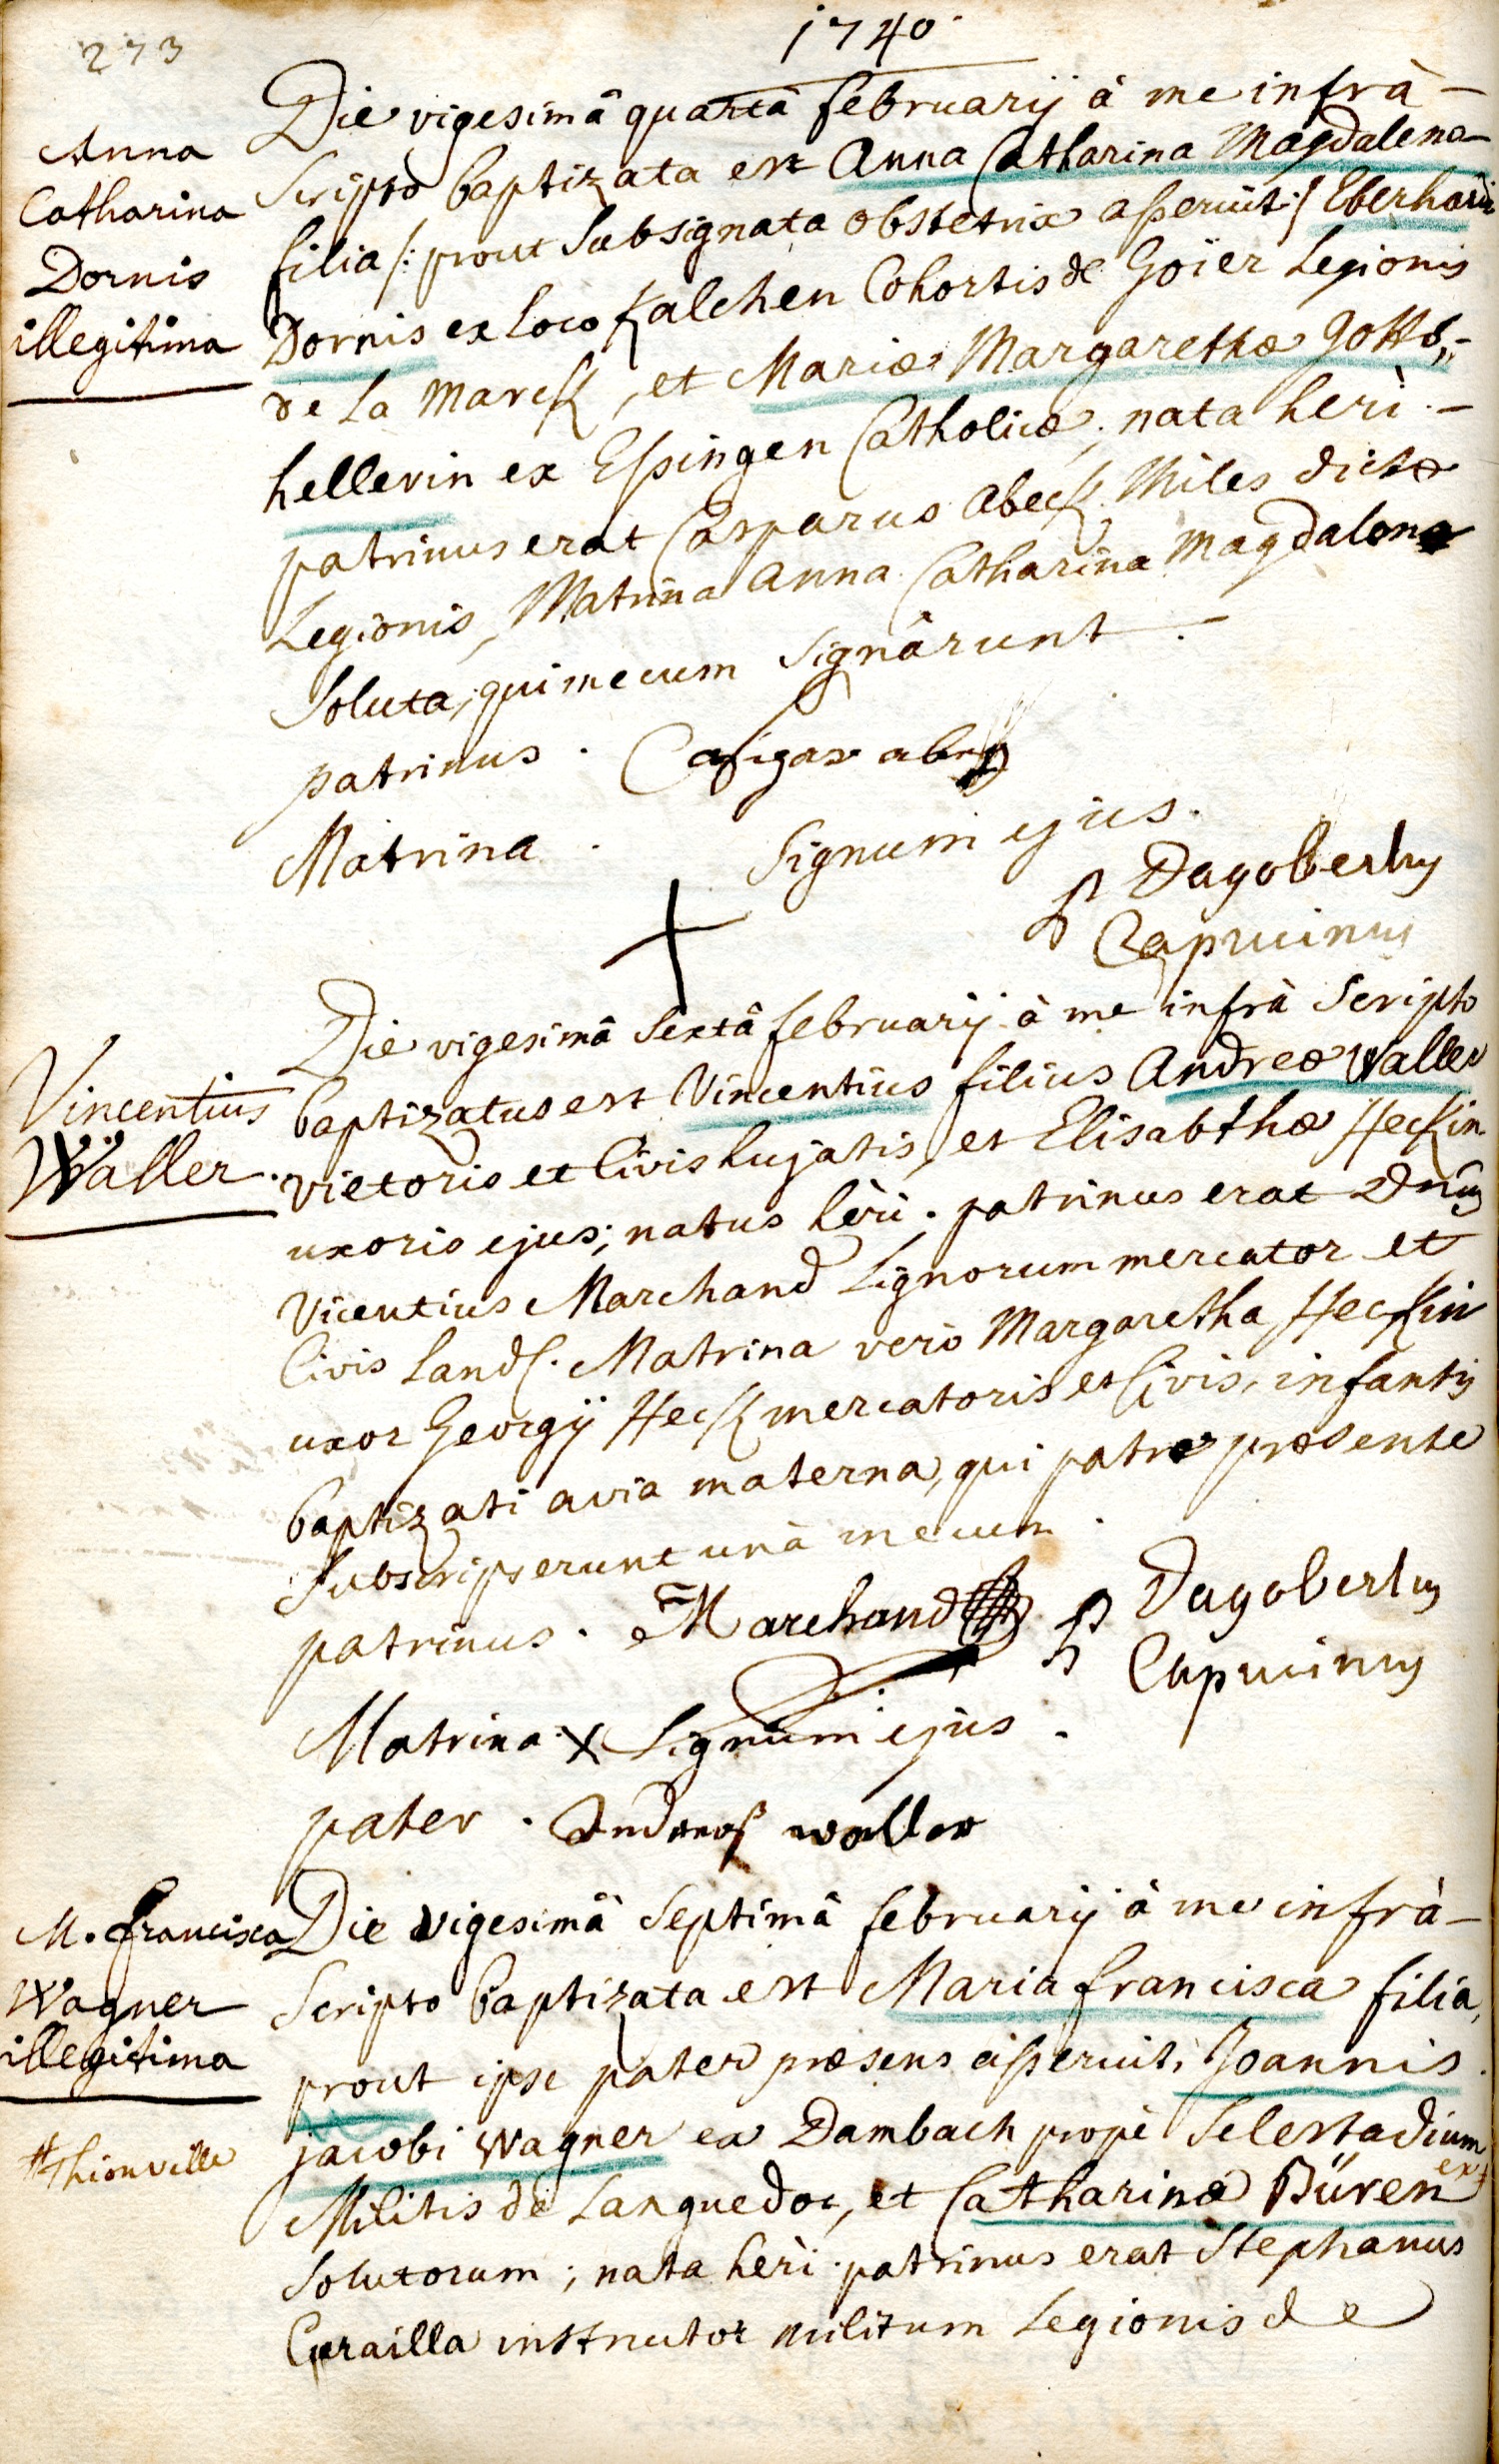 273
1740
Anna
Catharina
Dornis
illegitima
Die vigesimâ quartâ februarij â me infrà-
Scripto baptizata est Anna Catharina Magdalena
filia /: prout Subsignata obstetrix asseruit :/ Eberhardi
Dornis ex Loco Kalchen Cohortis de Goïer Legionis
de la Marck, et Mariæ Margarethæ Gotts,,-
hellerin ex Essingen Catholicæ; nata heri.-
patrinus erat Casparus Abeck Miles dictæ
Legionis, Matrina Anna Catharina Magdalena
Soluta, qui mecum Signârunt.-
patrinus.
Matrina. Signum ejus.
P Dagobertus
Capucinus
Vincentius
Waller.
Die vigesimâ Sextâ februarij â me infrà Scripto
baptizatus est Vincentius filius Andreæ Waller
vietoris et Civis hujatis, et Elisabthæ Heckin
uxoris ejus; natus heri. patrinus erat Dnus
Vicentius Marchand Lignorum mercator et
Civis Land. Matrina verò Margaretha Heckin
uxor Georgij Heck mercatoris et Civis, infantis
baptizati avia materna, qui patre præsente
Subscripserunt unà mecum.
patrinus. Marchand
P Dagobertus
Capucinus
Matrina X Signum ejus.
pater. Andreas waller
M. francisca
Wagner
illegitima
#Thionville
Die vigesimâ Septimâ februarij â me infrà-
Scripto baptizata est Maria francisca filia,
prout ipse pater præsens asseruit, Joannis
jacobi Wagner ex Dambach propè Selestadium
Militis de Languedoc, et Catharinæ Büren ex#
Solutorum; nata heri. patrinus erat Stephanus
instructor militum Legionis de